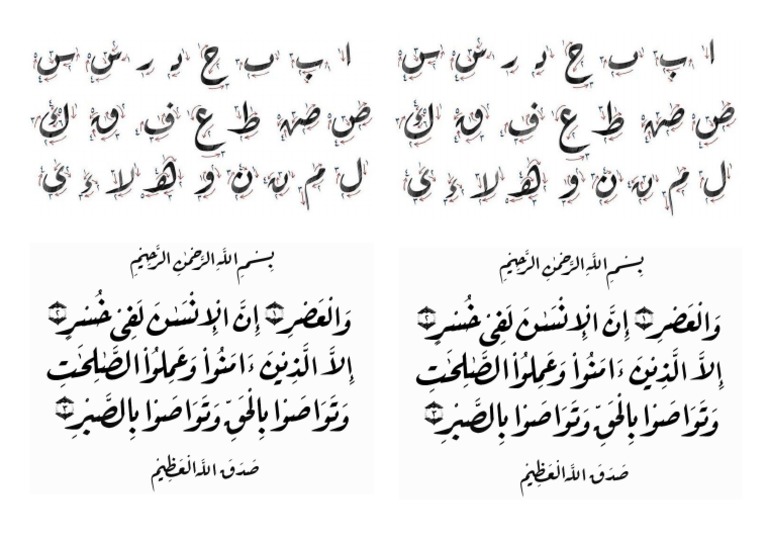 ا ب ٮ ح د ر س س
ص صہ ط ع ف ق ك
ل م ں ن و ه لا ء ى
ا ب ٮ ح د ر س س
ص صہ ط ع ف ق ك
ل م ں ن و ه لا ء ى
بِسْمِ اللَّهِ الرَّحْمٰنِ الرَّحِيْمِ
وَالْعَصْرِ ﴿١﴾ إِنَّ الْإِنْسٰنَ لَفِيْ خُسْرٍ ﴿٢﴾
إِلاَّ الَّذِيْنَ ءَامَنُوْا وَعَمِلُوْا الصَّٰلِحٰتِ
وَتَوَاصَوْا بِالْحَقِّ وَتَوَاصَوْا بِالصَّبْرِ ﴿٣﴾
صَدَقَ اللهُ الْعَظِيْمُ
بِسْمِ اللَّهِ الرَّحْمٰنِ الرَّحِيْمِ
وَالْعَصْرِ ﴿١﴾ إِنَّ الْإِنْسٰنَ لَفِيْ خُسْرٍ ﴿٢﴾
إِلاَّ الَّذِيْنَ ءَامَنُوْا وَعَمِلُوْا الصَّٰلِحٰتِ
وَتَوَاصَوْا بِالْحَقِّ وَتَوَاصَوْا بِالصَّبْرِ ﴿٣﴾
صَدَقَ اللهُ الْعَظِيْمُ